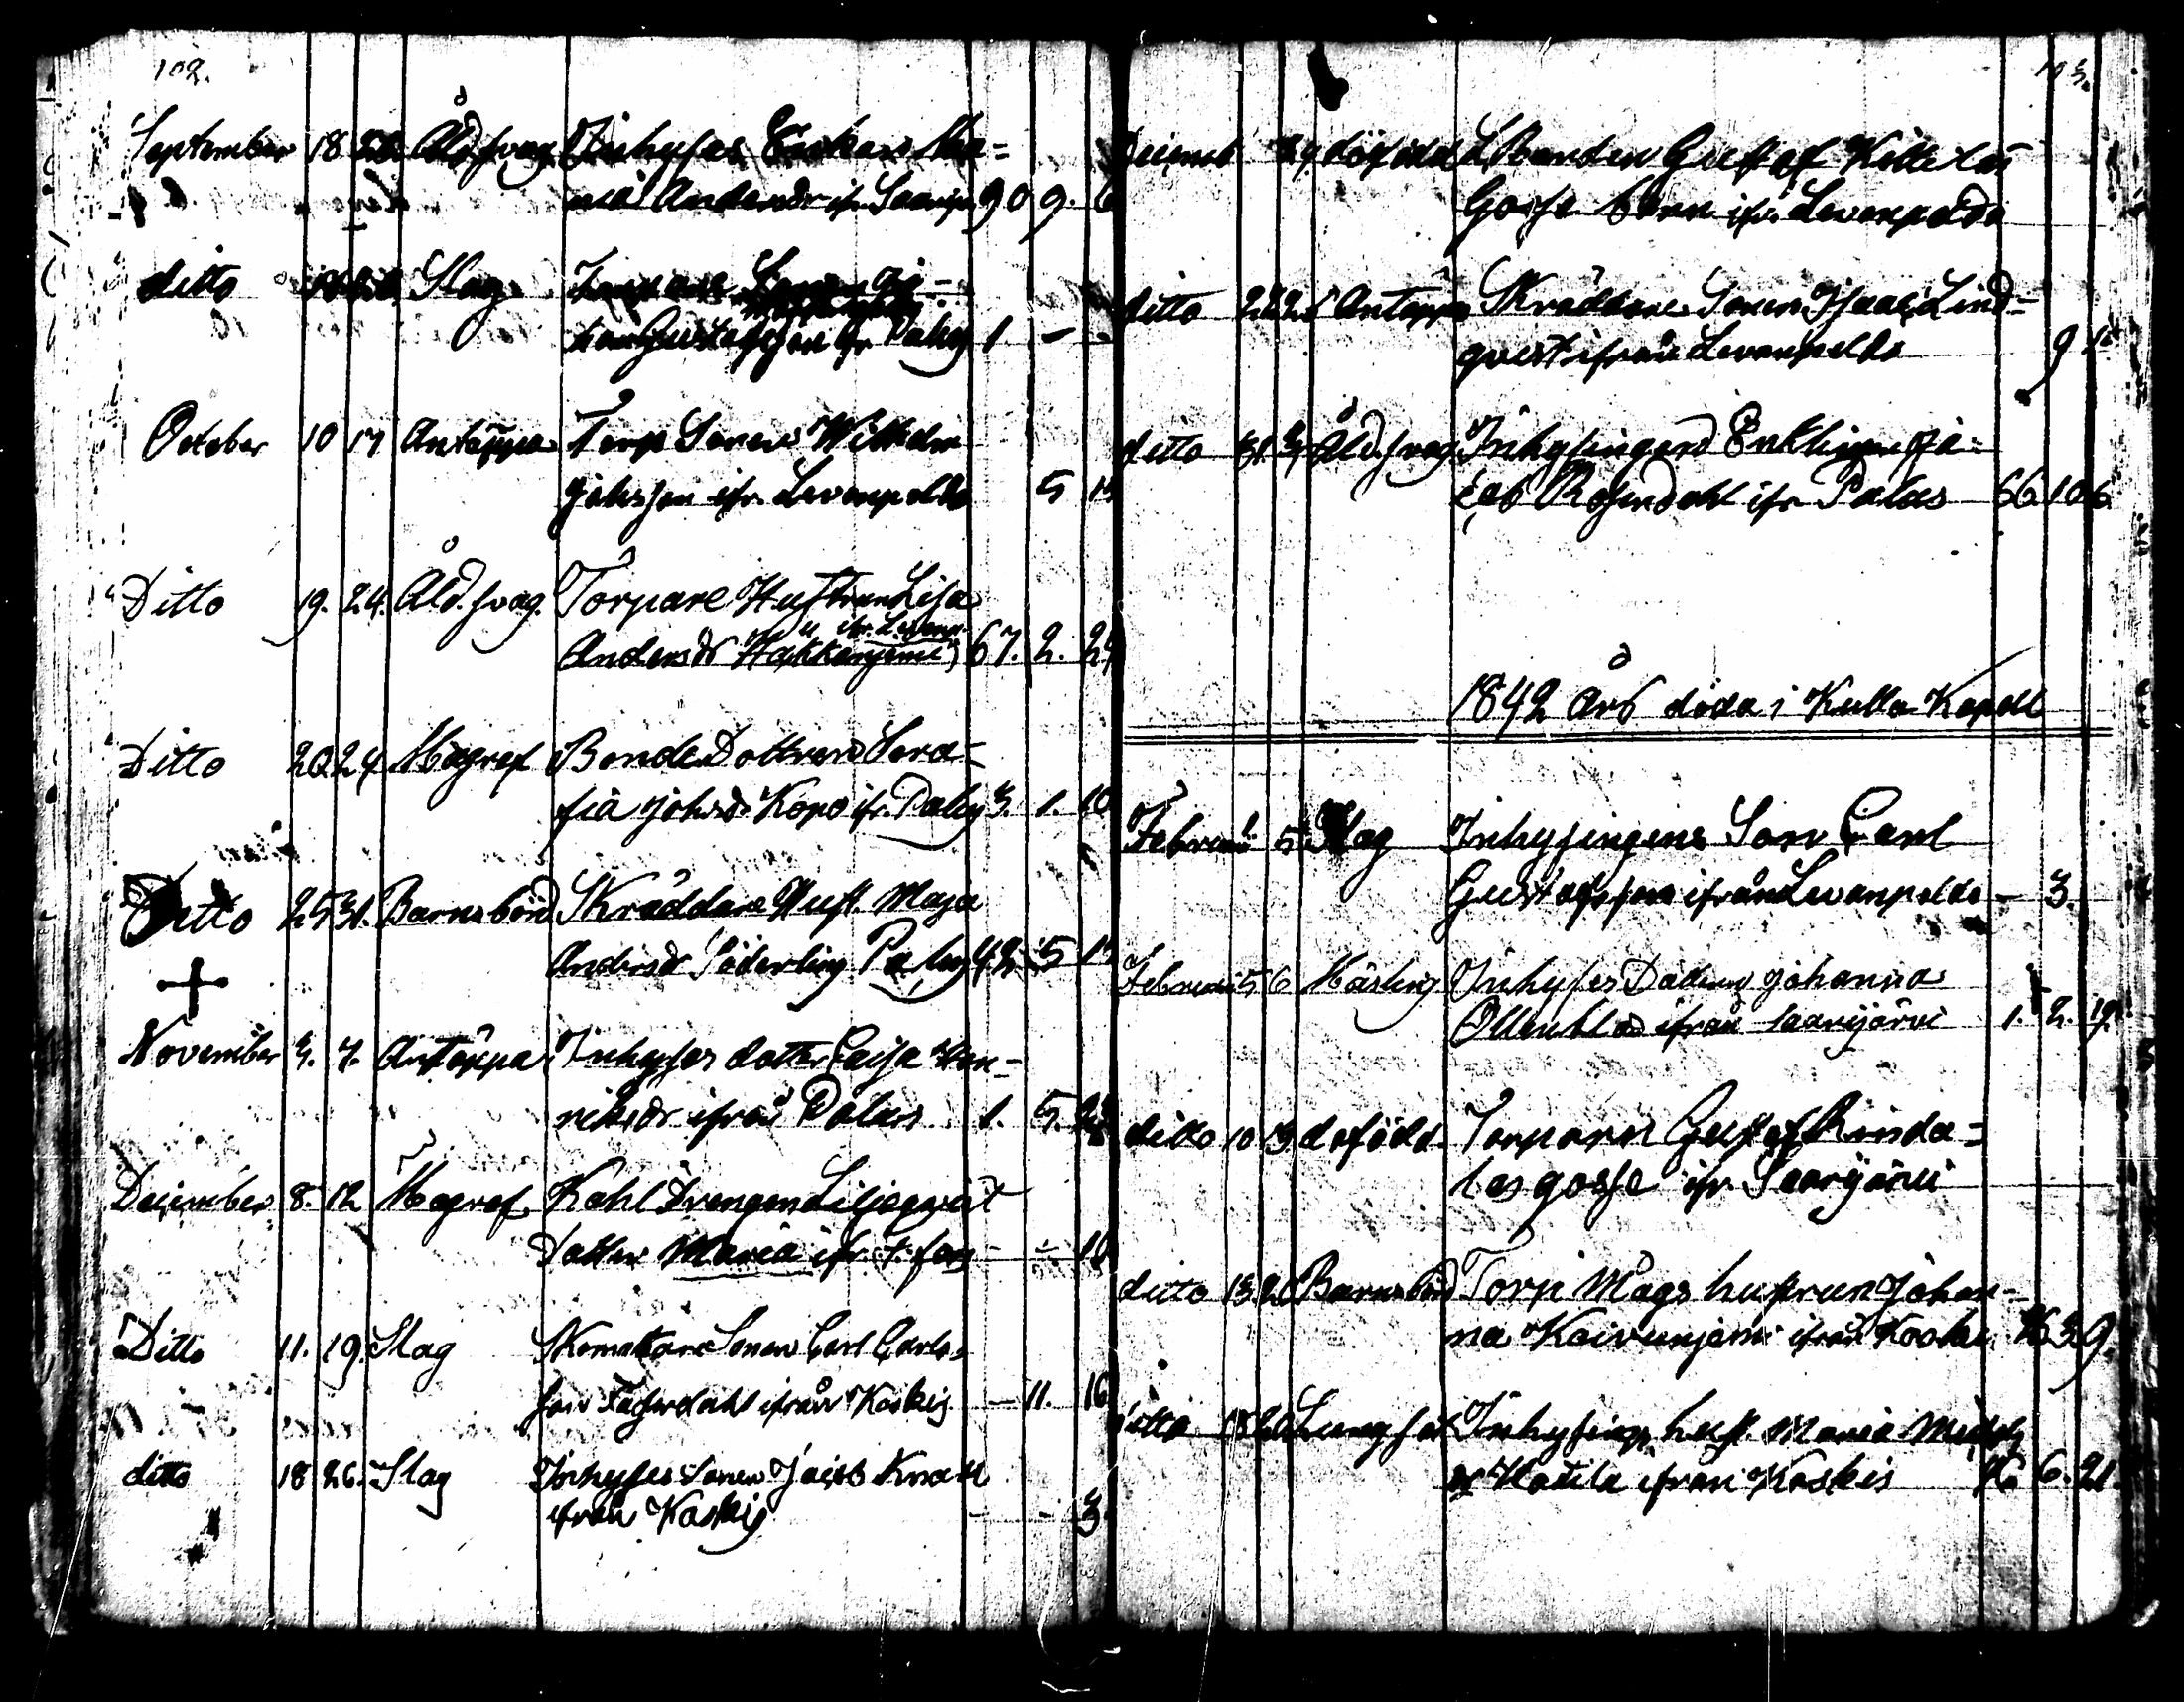 102.
September 18 Åld. svag Inhyses Enkan Ma=
ria Andersdr ifr. Saarijr 90 9. 6
ditto Slag
han Gustafsson fr. Paluj 1 - -
October 10 17 Antäppa Torp Sonen Wilhelm
Johsson ifr. Levonpeldo 5 13
Ditto 19. 24. Åld. svag. Torpare Hustrun Lisa
ifr. Levonp
Andersdr Hakkanjemi 67. 2. 24
Ditto 20 24 Magref Bonde Dottren Sera=
fia Johsdr Kopo ifr. Paluj 3. 1. 10
Ditto 25 31. Barnsbörd Skräddare Hust. Maja
Andersdr Söderling Paluj 42 5 1
November 3. 7. Antäppa Inhyses dotter Caisa Hen-
riksdr ifrån Palus 1. 5. 28
December 8. 12 Magref. Kohl Drengen Liljeqvist
Dotter Maria ifr. - -
Ditto 11. 19. Slag Skomakare Sonen Carl Carls=
son Fagerdahl ifrån Koskis - 11. 16
ditto 18 26. Slag Inhyses Sonen Jacob Knall
ifrån Koskis - - 3
103.
Decemb 29. dödfödd L. Bonden Gustaf Kittelas
Gosse barn ifr. Levonpeldo
ditto 22 26 Antäppa Skräddare Sonen Isaac Lind=
qvist ifrån Levonpeldo 9 18
ditto 31. Åld. svag. Inhysingens Enklingen Ja=
cob Rosendahl ifr Palus 66 10 6
1842 års döda i Kulla Kapell
Februari 5 Slag Inhysingens Son Carl
Gustafsson ifrån Levonpeldo - 3.
Februari 5 6 Mäsling Inhyses Dottren Johanna
Ollenblad ifrån Saarijärvi 1. 2. 19.
ditto 10 13 dofödd. Torparn Gustaf Rinda=
las gosse ifr Saarijärvi
ditto 13 20 Barnsbörd Torp Mågs hustrun Johan-
na Koivunjemi ifrån Koskis 36 3 9
ditto 18 Lungsot Inhysings hust. Maria
Hatula ifrån Koskis 6. 21.